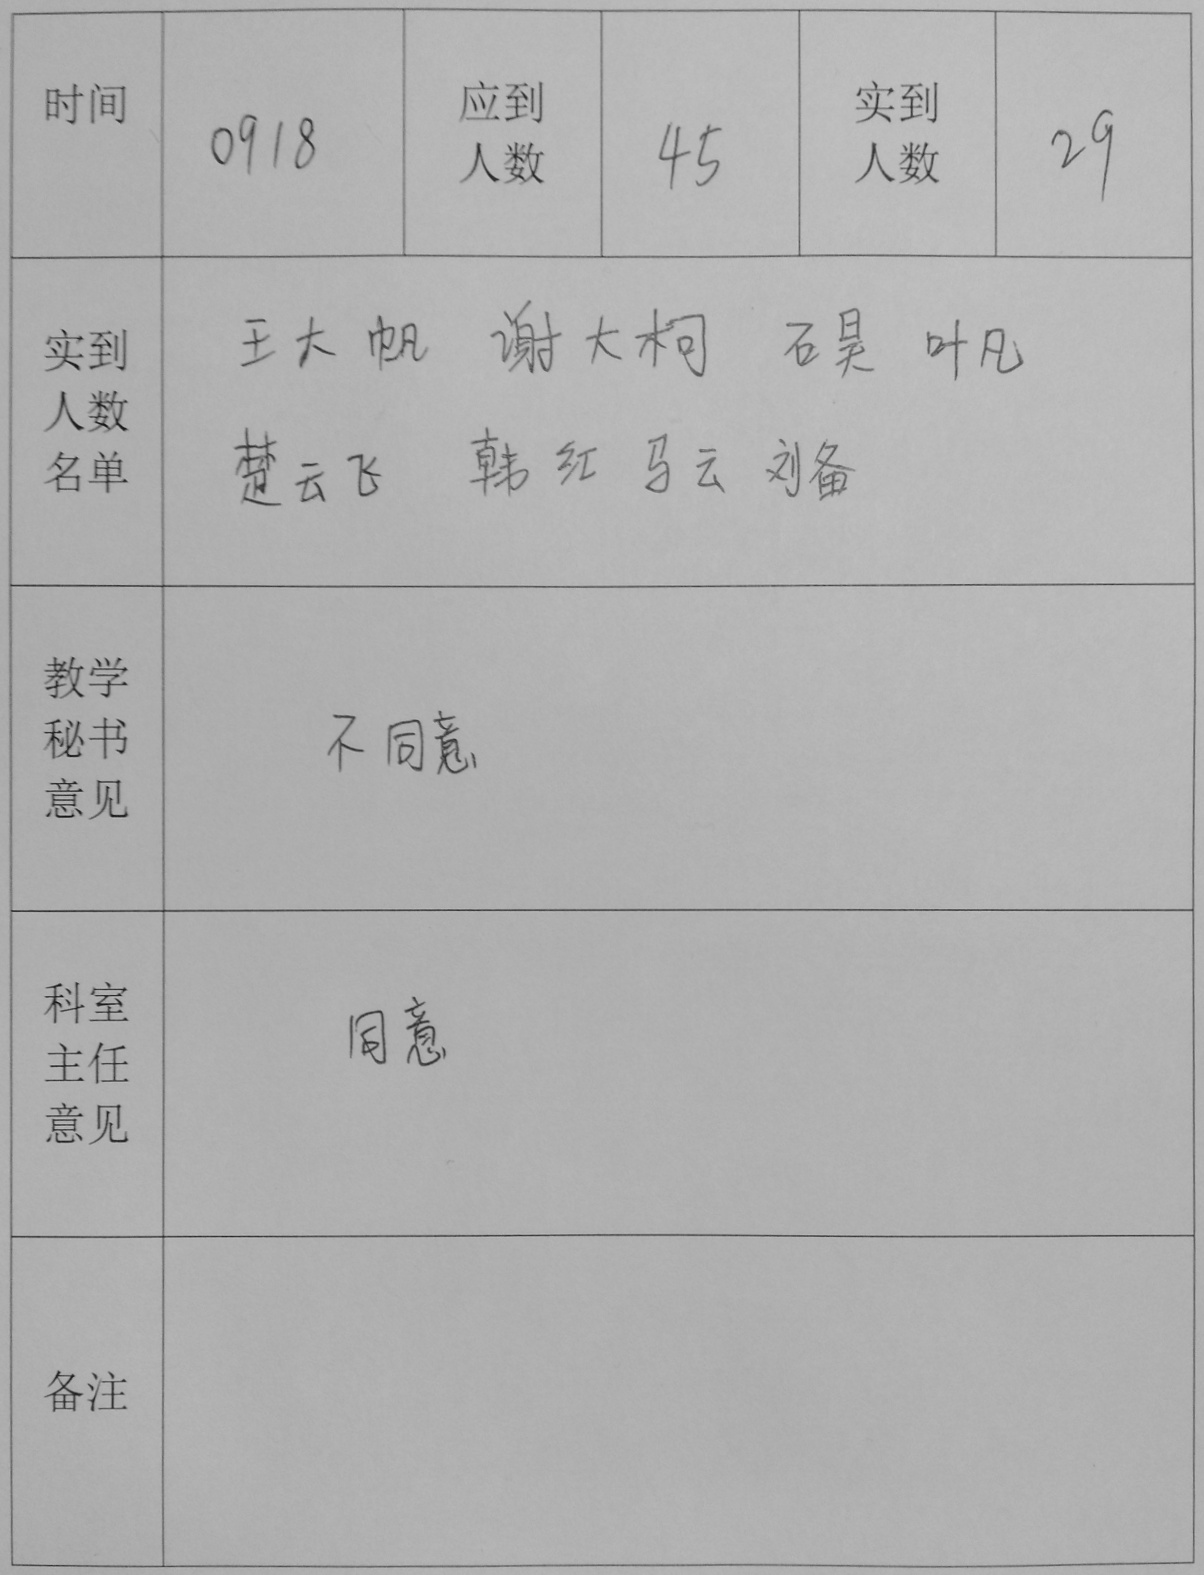 时间 0918 应到人数 45 实到人数 29
实到人数名单
王大帆 谢大柯 石昊 叶凡
楚云飞 韩红 马云 刘备
教学秘书意见
不同意
科室主任意见
同意
备注